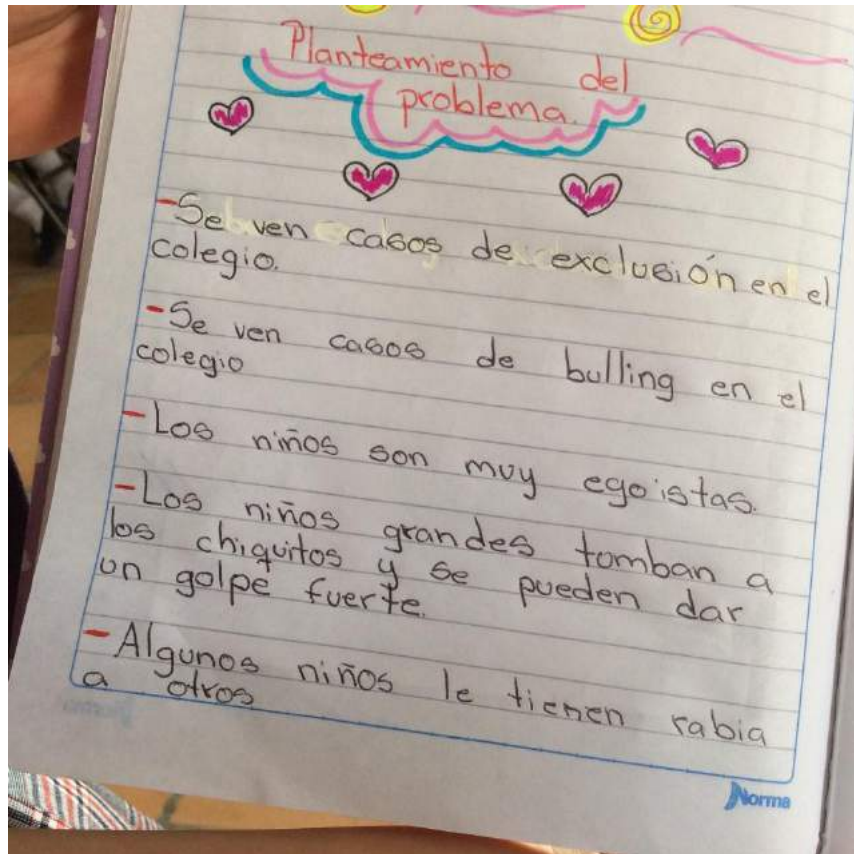 Planteamiento del
problema.
-Se ven casos de exclusión en el
colegio.
-Se ven casos de bulling en el
colegio
-Los niños son muy egoistas.
-Los niños grandes tomban a
los chiquitos y se pueden dar
un golpe fuerte.
-Algunos niños le tienen rabia
a otros
Norma